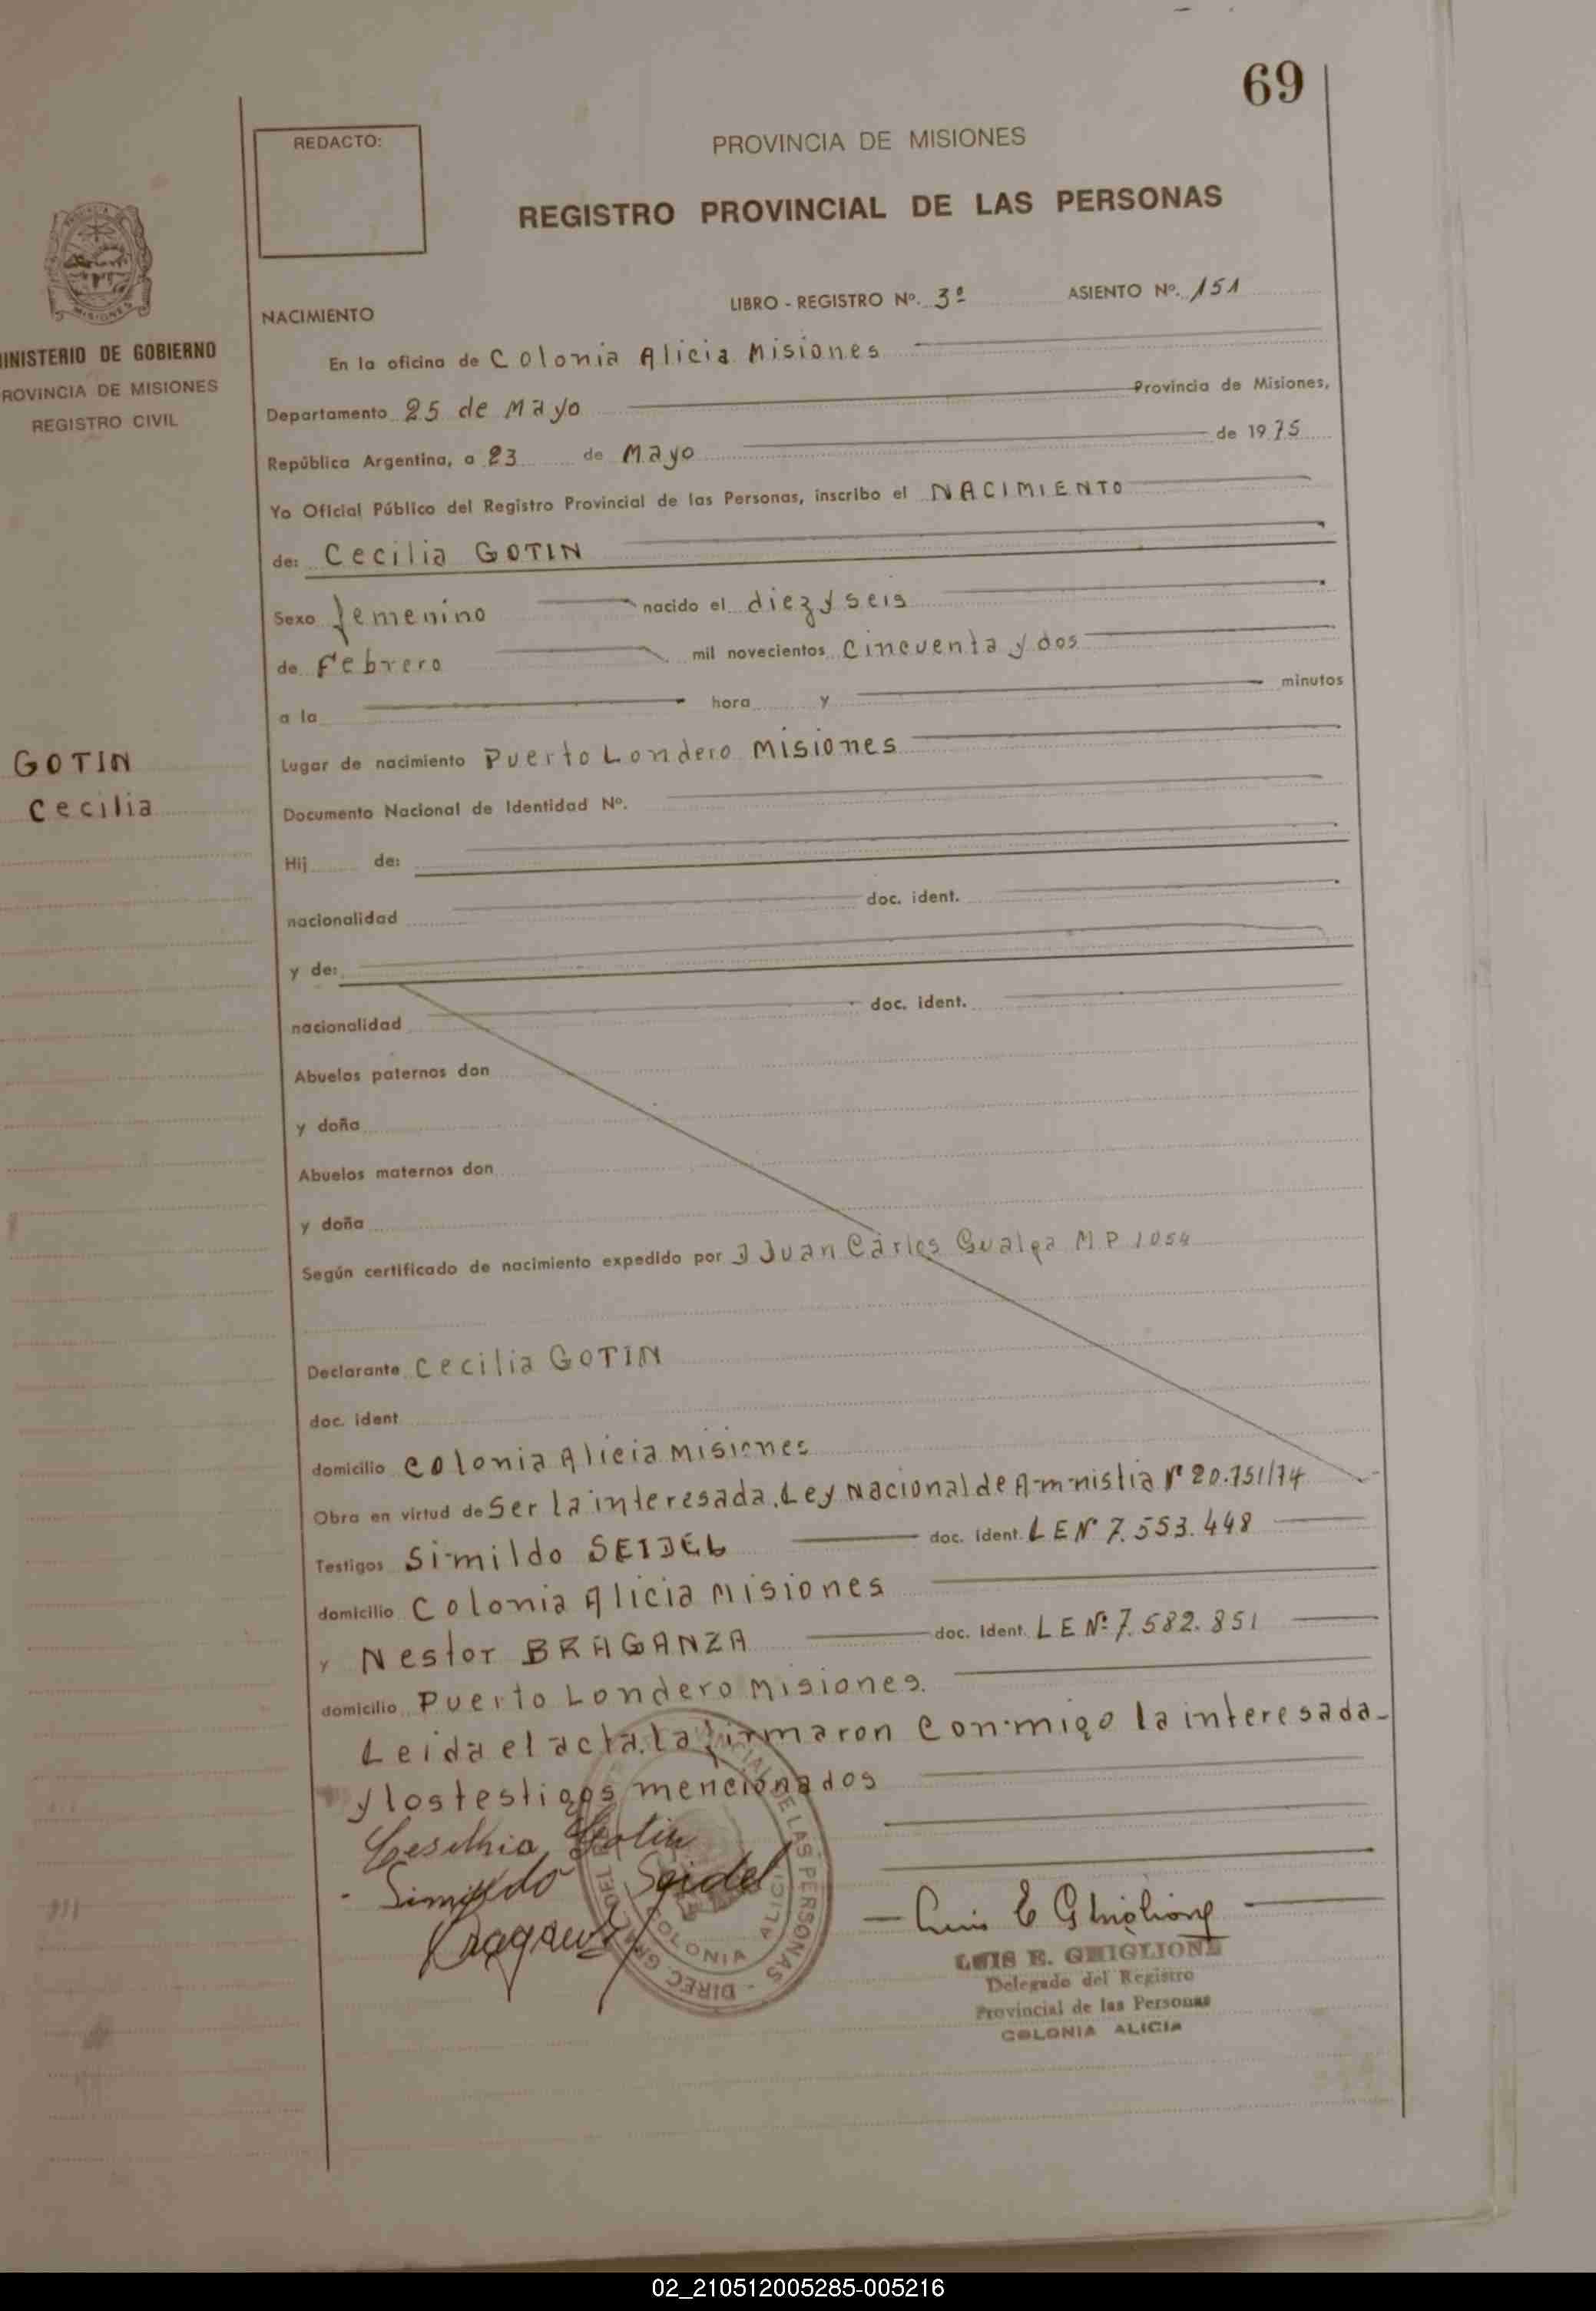 69
REDACTO:
PROVINCIA DE MISIONES
REGISTRO PROVINCIAL DE LAS PERSONAS
MISIONES
INISTERIO DE GOBIERNO
ROVINCIA DE MISIONES
REGISTRO CIVIL
NACIMIENTO
LIBRO - REGISTRO Nº. 3º ASIENTO Nº. 151
En la oficina de Colonia Alicia Misiones
Departamento 25 de Mayo Provincia de Misiones,
República Argentina, a 23 de Mayo de 1975
Yo Oficial Público del Registro Provincial de las Personas, inscribo el NACIMIENTO
de: Cecilia GOTIN
Sexo femenino nacido el diez y seis
de Febrero mil novecientos cincuenta y dos
a la hora y minutos
GOTIN
Cecilia
Lugar de nacimiento Puerto Londero Misiones
Documento Nacional de Identidad Nº.
Hij de:
nacionalidad doc. ident.
y de:
nacionalidad doc. ident.
Abuelos paternos don
y doña
Abuelos maternos don
y doña
Según certificado de nacimiento expedido por Juan Carlos MP 1054
Declarante Cecilia GOTIN
doc. ident
domicilio Colonia Alicia Misiones
Obra en virtud de Ser la interesada. Ley Nacional de Amnistia Nº 20.751/74
Testigos Simildo SEIDEL doc. ident. LE Nº 7.553.448
domicilio Colonia Alicia Misiones
y Nestor BRAGANZA doc. ident. LE Nº 7.582.851
domicilio Puerto Londero Misiones.
Leida el acta, la firmaron conmigo la interesada
y los testigos mencionados
Gotin
Simildo Seidel
Luis E Ghiglione
LUIS E. GHIGLIONE
Delegado del Registro
Provincial de las Personas
COLONIA ALICIA
DE LAS PERSONAS - DIREC. GRAL. DEL
COLONIA ALICIA
02_210512005285-005216